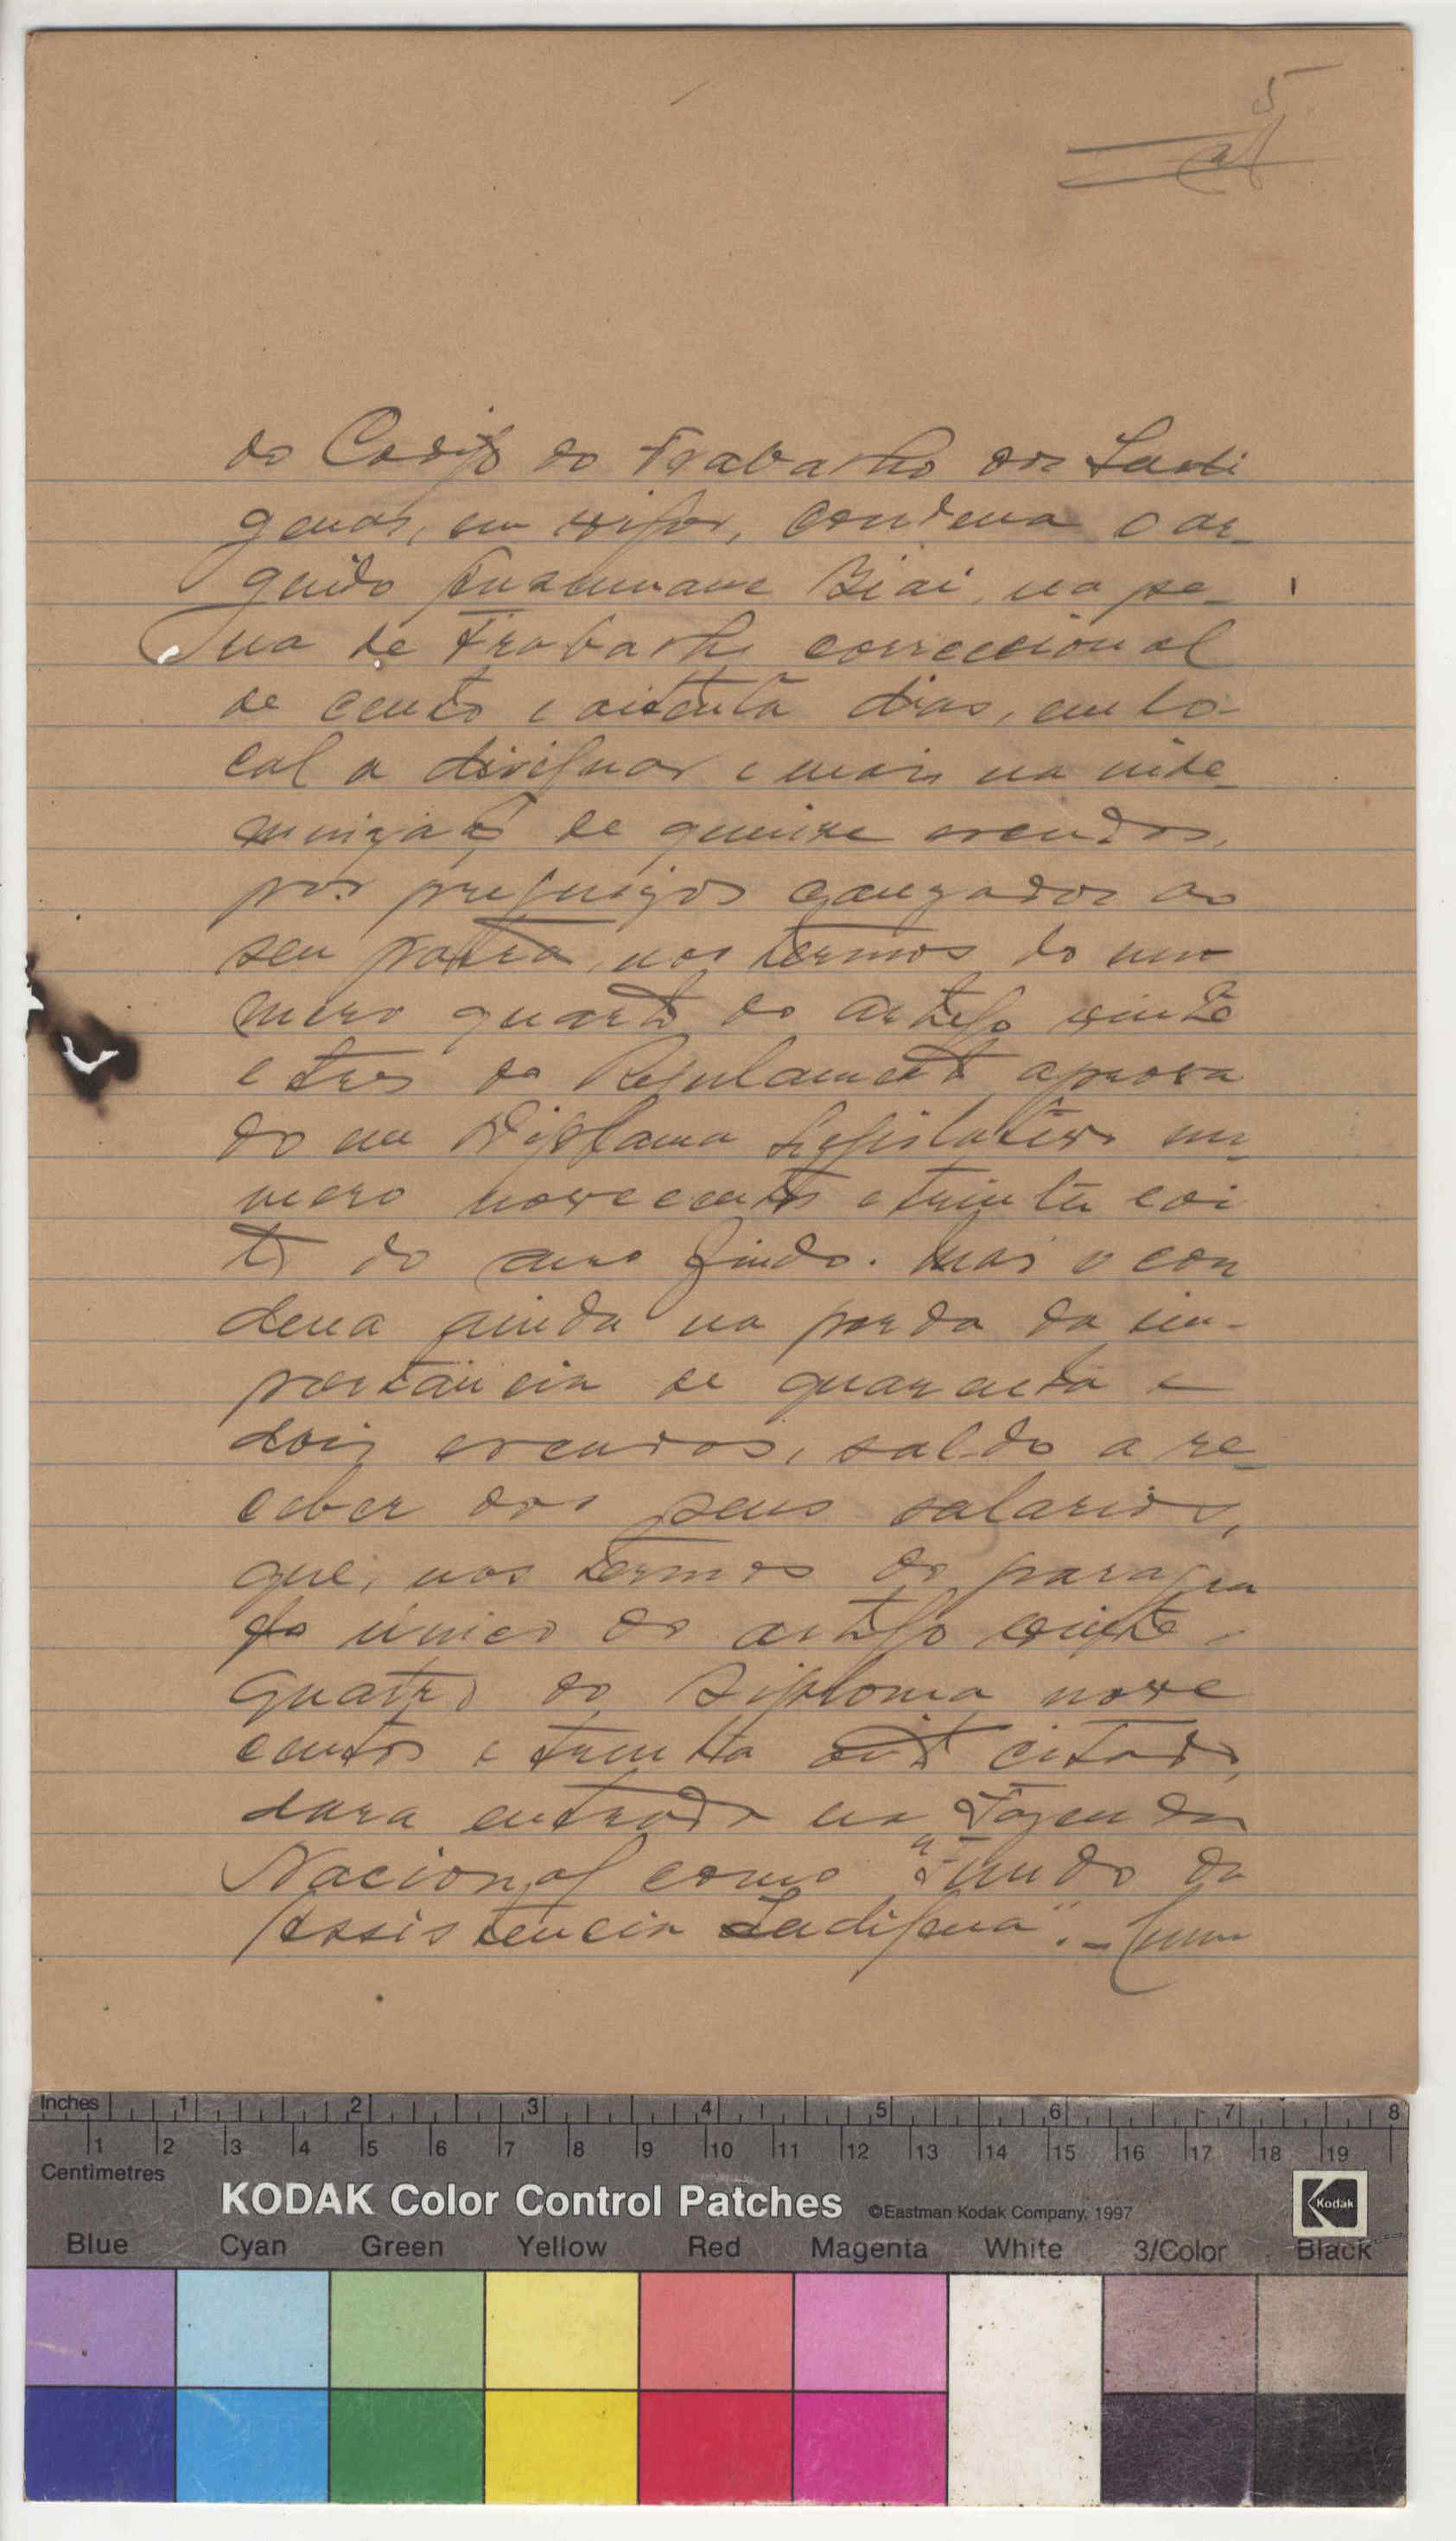 5
do Codigo do Trabalho dos Indi
genas, em vigor, condena o ar-
guido Biai, na pe-
na de Trabalho correccional
de cento e oitenta dias, em lo-
cal a divignar e mais na inde-
mnização de quinze escudos,
por prejuizos cauzados ao
seu patrão, nos termos do nu
mero quarto do artigo vinte
e tres do Regulamento aprova
do em Diploma Legislativo nu-
mero novecentos e trinta e oi
to do ano findo. Mais o con
dena ainda na perda da im-
portáncia de quarenta e
dois escudos, saldo a re-
ceber dos seus salarios,
que, nos termos do paragra
fo único do artigo vinte e
quatro do Diploma nove
centos e trinta oito citado,
dara entrada na Fazenda
Nacional como "Fundo da
Assistencia Indigena".-
Inches 1 2 3 4 5 6 7 8
1 2 3 4 5 6 7 8 9 10 11 12 13 14 15 16 17 18 19
Centimetres
KODAK Color Control Patches ©Eastman Kodak Company, 1997 Kodak
Blue Cyan Green Yellow Red Magenta White 3/Color Black